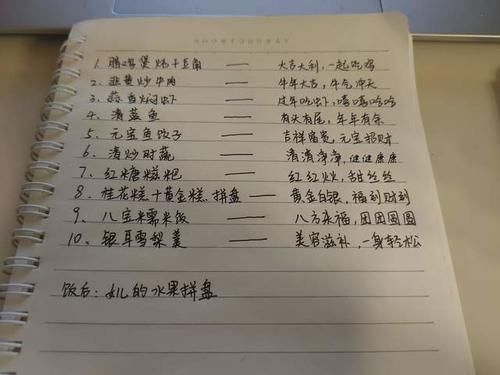 1、腊鸡煲炖干豆角 —— 大吉大利，一起吃鸡
2、韭黄炒牛肉 —— 牛年大吉，牛气冲天
3、蒜香焖虾 —— 过年吃虾，嘻嘻哈哈
4、清蒸鱼 —— 有头有尾，年年有余
5、元宝鱼饺子 —— 吉祥富贵，元宝招财
6、清炒时蔬 —— 清清净净，健健康康
7、红糖糍粑 —— 红红火火，甜丝丝
8、桂花糕+黄金糕 拼盘 —— 黄金白银，福到财到
9、八宝糯米饭 —— 八方来福，团团圆圆
10、银耳雪梨羹 —— 美容滋补，一身轻松
饭后：女儿的水果拼盘